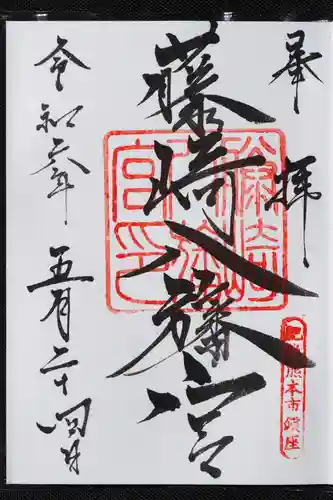 奉拝
藤崎八旛宮
令和六年
五月二十四日
熊本市鎮座